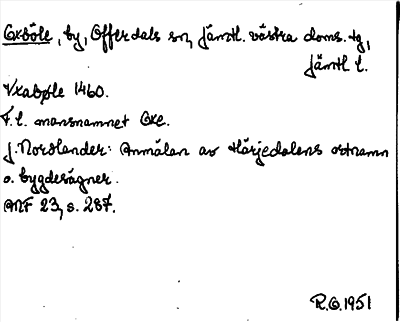 Oxböle, by, Offerdals sn, Jämtl. västra doms. tg,
Jämtl l.
Vxabøle 1460.
F. l. mansnamnet Oxe.
J. Nordlander: Anmälan av Härjedalens ortnamn
o. bygdesägner.
ANF 23, s. 287.
R.O. 1951